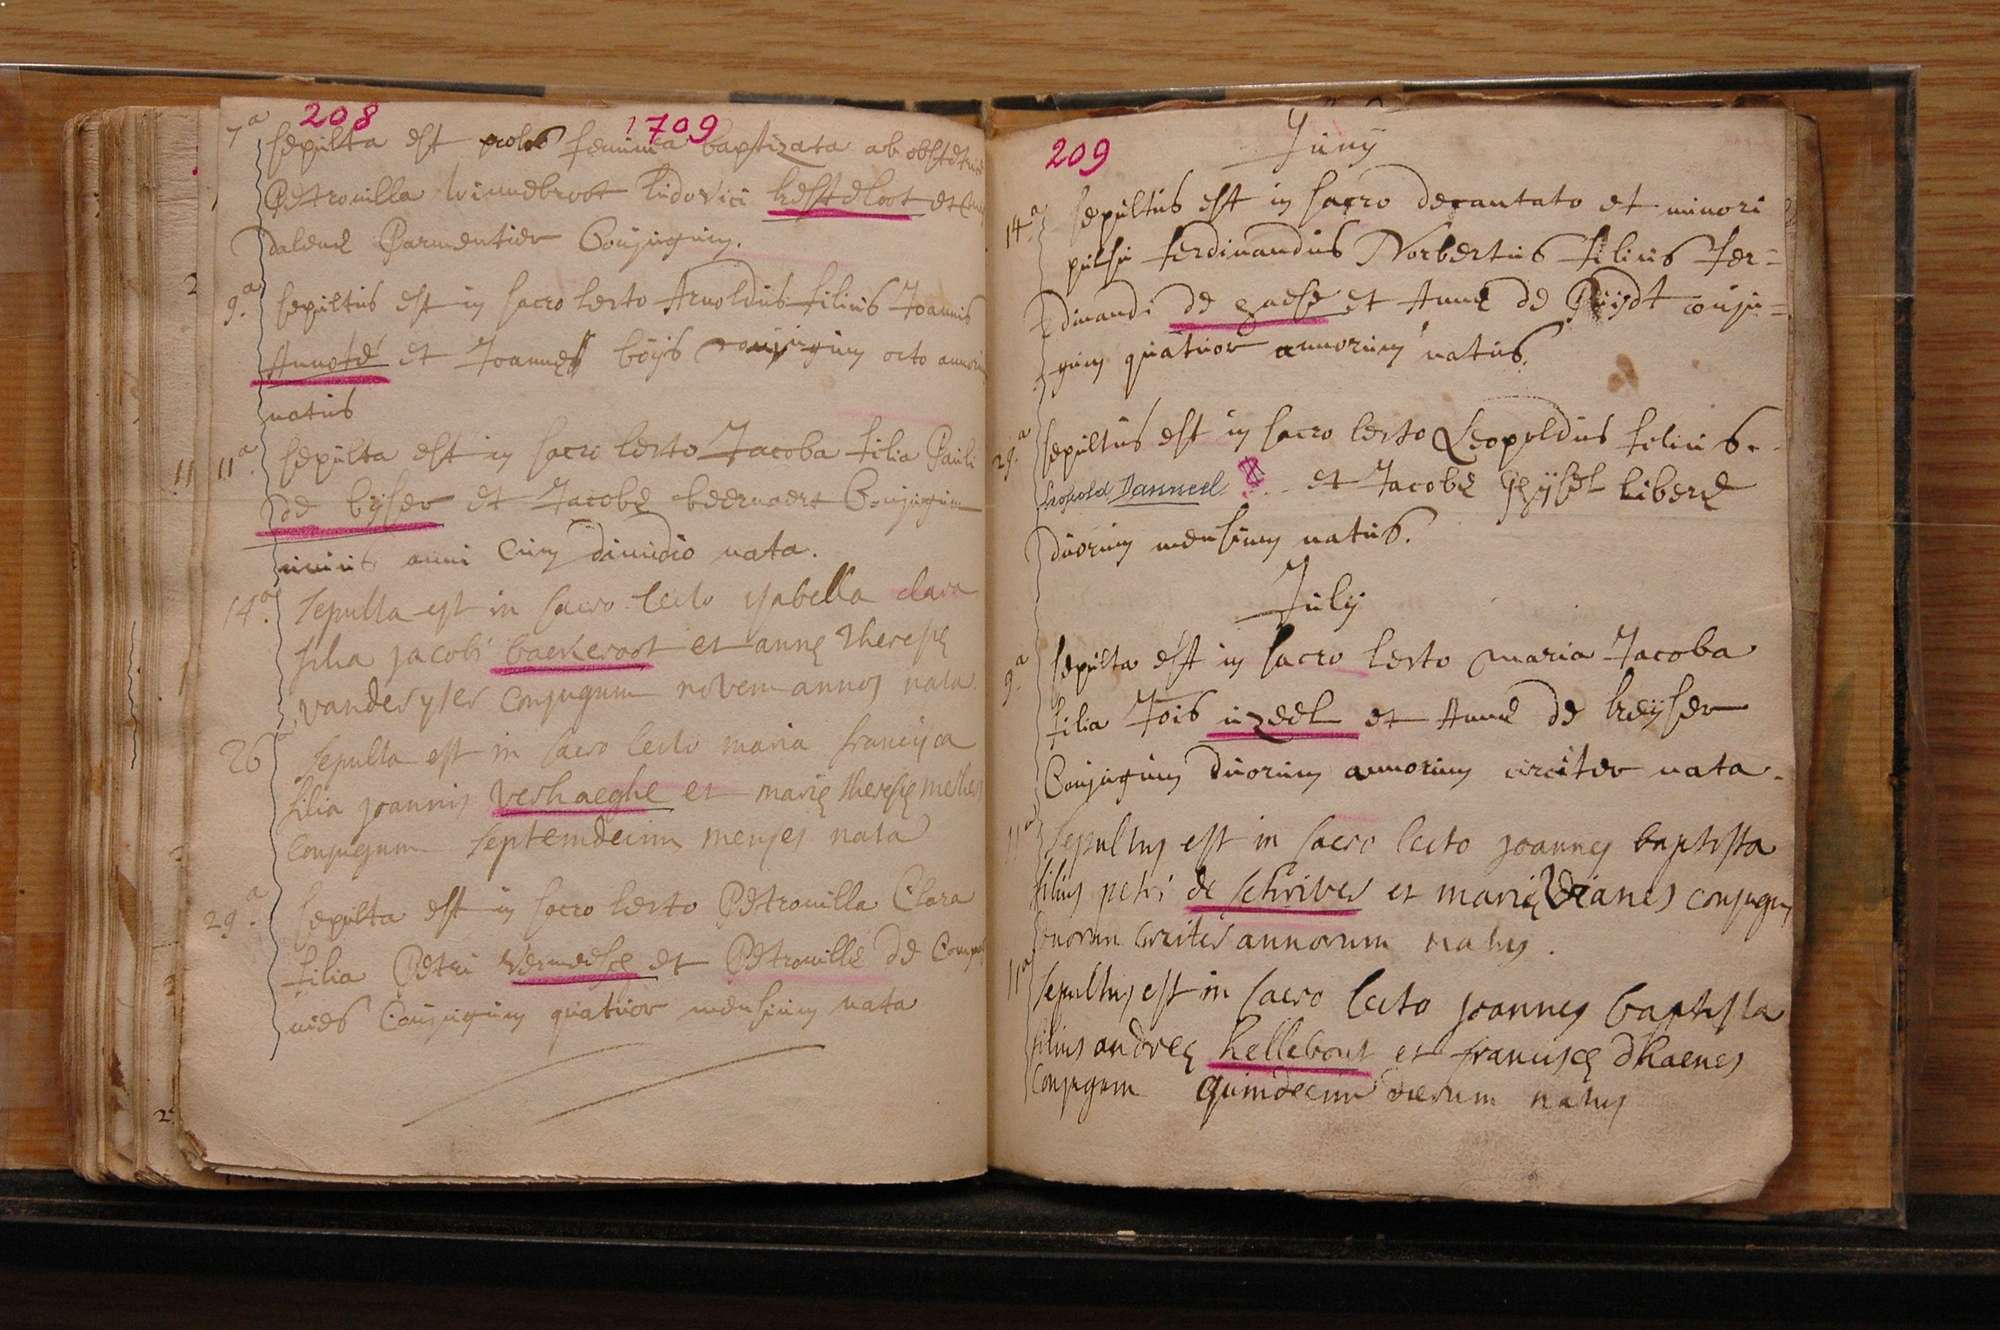 208
1709
7a sepulta est proles feminina baptizata ab obstetrice
Petronilla Winnebroot Ludovici kesteloot et
dalenę Parmentier Conjugum.
9.a sepultus est in sacro lecto Arnoldus filius Joannis
Annoté et Joannę büÿs conjugum octo annorum
natus
11 11a. sepulta est in sacro lecto Jacoba filia Pauli
de keyser et Jacobę beernaert Conjugum
unius anni cum dimidio nata.
14a. sepulta est in sacro lecto ysabella clara
filia jacobi baekeroot et annę theresię
vandesyles conjugum novem annos nata
26 sepulta est in sacro lecto maria francisca
filia joannis verhaeghe et marię theresię
conjugum septemdecim menses nata
29a. sepulta est in sacro lecto Petronilla Clara
filia Petri vermeesch et Petronillę de
Conjugum quatuor mensium nata
209
Junÿ
14.a sepultus est in sacro decantato et minori
pulsu ferdinandus Norbertus filius fer=
dinandi de gaese et Annę de Püijdt conju=
gum quatuor annorum natus.
29.a sepultus est in sacro lecto Leopoldus filius..
Leopold Danneel et Jacobę Ghÿsel liberę
duorum mensium natus.
Julÿ
9.a sepulta est in sacro lecto maria Jacoba
filia Jois inzeel et Annę de keÿser
Conjugum duorum annorum circiter nata.
11a sepultus est in sacro lecto joannes baptista
filius petri de schrives et marię Vianes conjugum
duorum circiter annorum natus.
11a sepultus est in sacro lecto joannes baptista
filius andreę hellebout et franciscę dhaenes
conjugum quindecim dierum natus